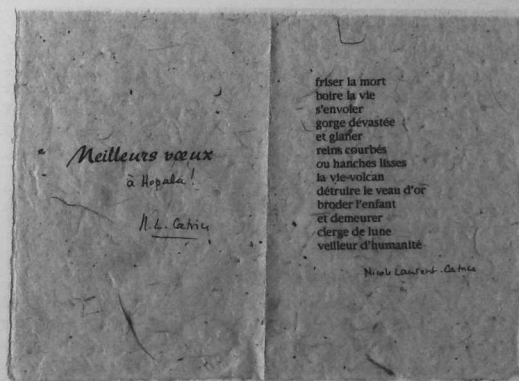 Meilleurs vœux
à Hopala !
N. L. Catrice
friser la mort
boire la vie
s'envoler
gorge dévastée
et glaner
reins courbés
ou hanches lisses
la vie-volcan
détruire le veau d'or
broder l'enfant
et demeurer
cierge de lune
veilleur d'humanité
Nicole Laurent-Catrice